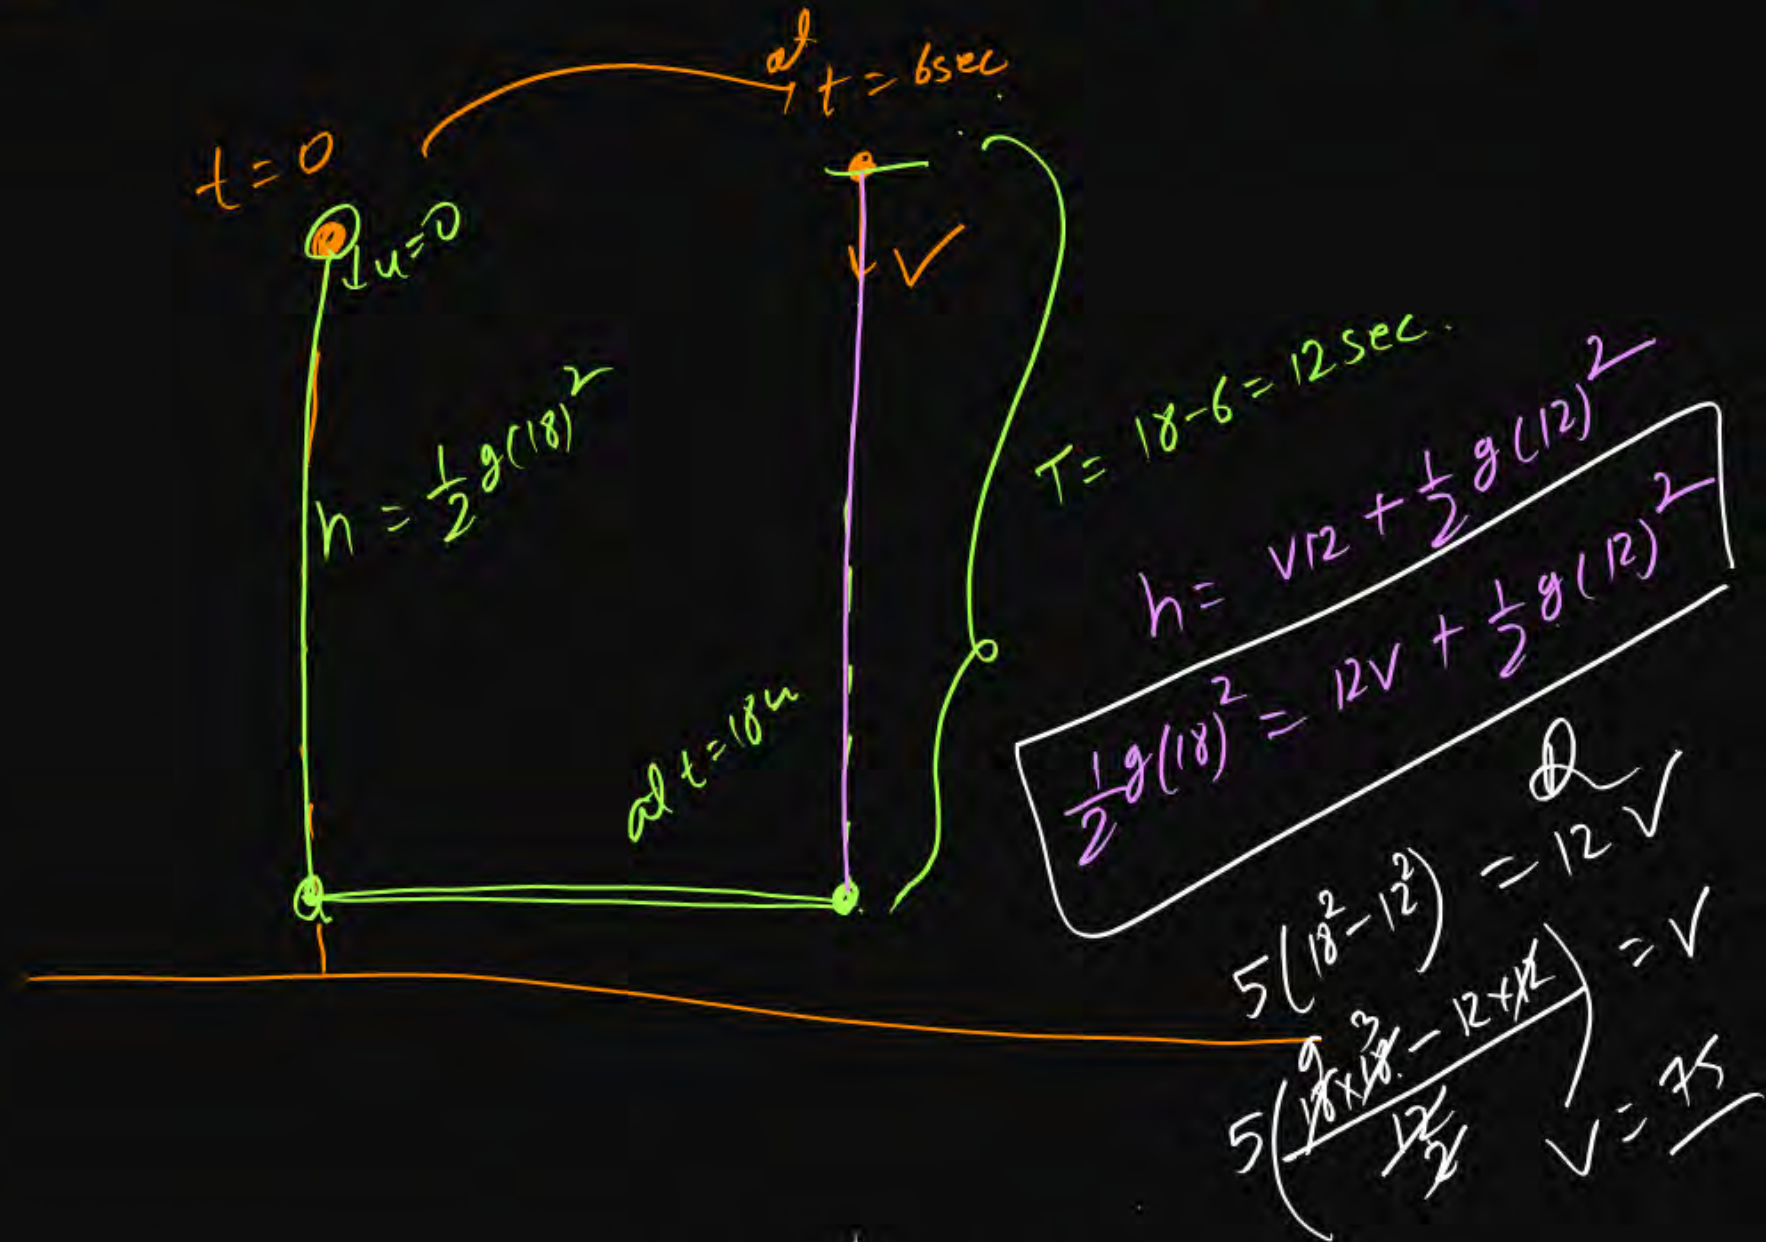 at t = 6sec
t = 0
↓ u=0
v
h = 1/2 g(18)²
T = 18-6 = 12 sec.
h = v12 + 1/2 g(12)²
1/2 g(18)² = 12v + 1/2 g(12)²
at t = 18
5(18² - 12²) = 12 v
5(18×18 - 12×12 / 12) = v
9 3
2
v = 75